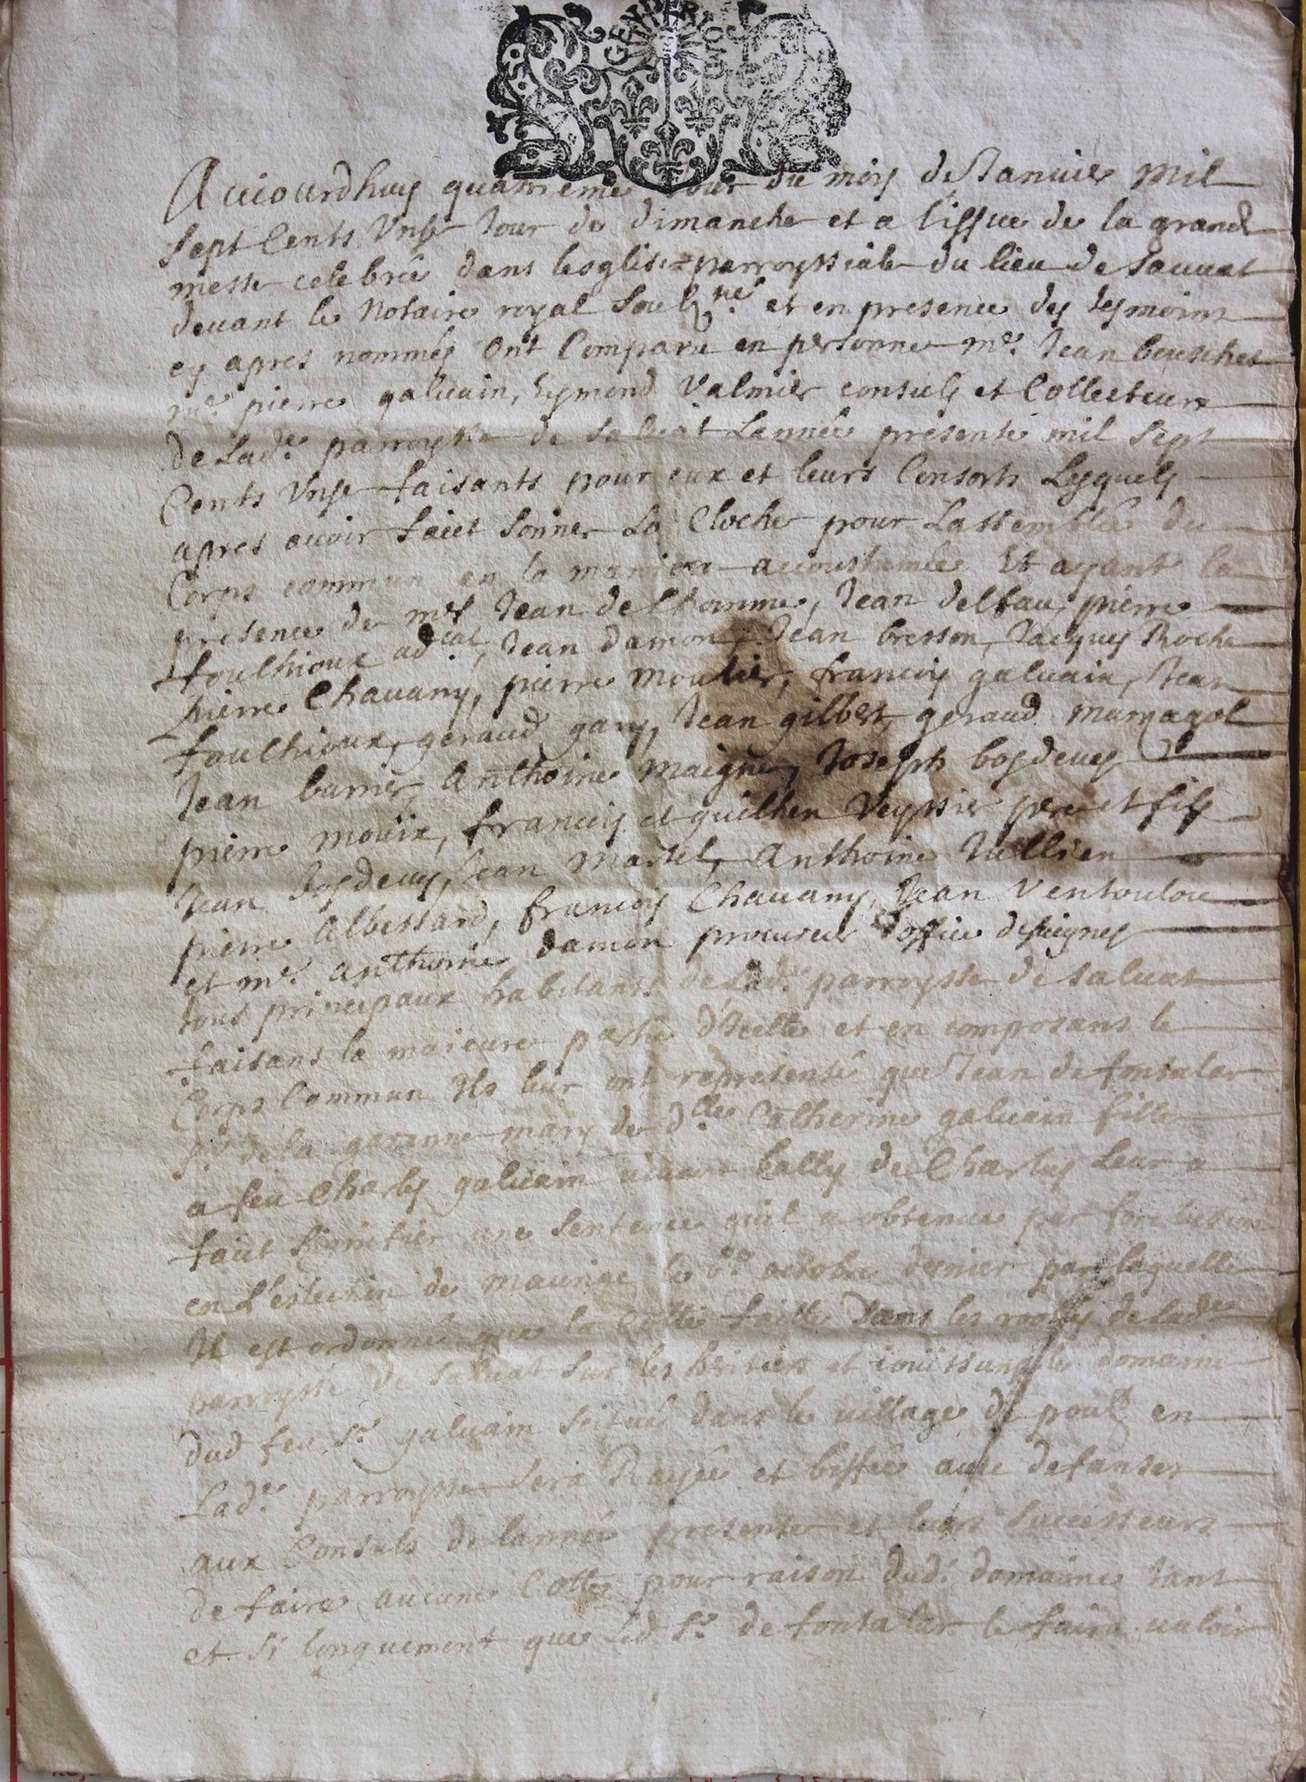 GENER
Aujourdhuy quatrieme Jour du mois de Janvier mil
sept Cents Unse Jour de dimanche et a lissue de la grande
messe celebrée dans lesglise parroyssiale du lieu de Sauvat
devant le Notaire royal soubz.né et en presence des tesmoins
cy apres nommés ont Comparu en personne me. Jean bouschet
me. pierre galvain, Eymond Valmier consuls et Collecteurs
de Lad.e parroysse de salvat Lannée presente mil sept
Cents Unse faisants pour eux et leurs Consorts Lesquels
apres avoir faict sonner La Cloche pour Lassemblée du
Corps commun en la maniere accoustumée Et ayant la
presence de mes Jean delhomme, Jean delfau, pierre
foulhioux ad.cat, Jean damon, Jean bresson, Jacques Roche
pierre Chavany, pierre moulier, francois galvain, Jean
foulhioux, geraud gary, Jean gilbert, geraud mamagol
Jean barrier, Anthoine maigne, Joseph bosdeves
pierre moüix, francois et guilhen Veyssier pere et fils
Jean bosdeves, Jean martel, Anthoine Jullien
pierre Albessard, francois Chavany, Jean Ventoulou
et me. anthoine damon procureur doffice
tous principaux habitants de Lad.e parroysse de salvat
faisans la majeure partie d'Icelle et en composans le
Corps Commun Ils leur ont representé que Jean de fontaler
sr. de la garenne mary de d.lle Catherine galvain fille
a feu Charles galvain vivant bally de Charlus leur a
faict signifier une sentence quil a obtenue par forclusion
en L'eslection de mauriac le octobre dernier par laquelle
Il est ordonné que la Cotte faitte dans les rooles de lad.e
parroysse de salvat sur les heritiers et joüissans le domaine
dud feu sr. galvain situé dans le village de en
Lad.e parroysse sera Rayée et biffée avec defanses
aux Consuls de lannée presente et leurs successeurs
de faire aucune Cotte pour raison dud. domaine tant
et si longuement que Led sr. de fontaler le faira valoir